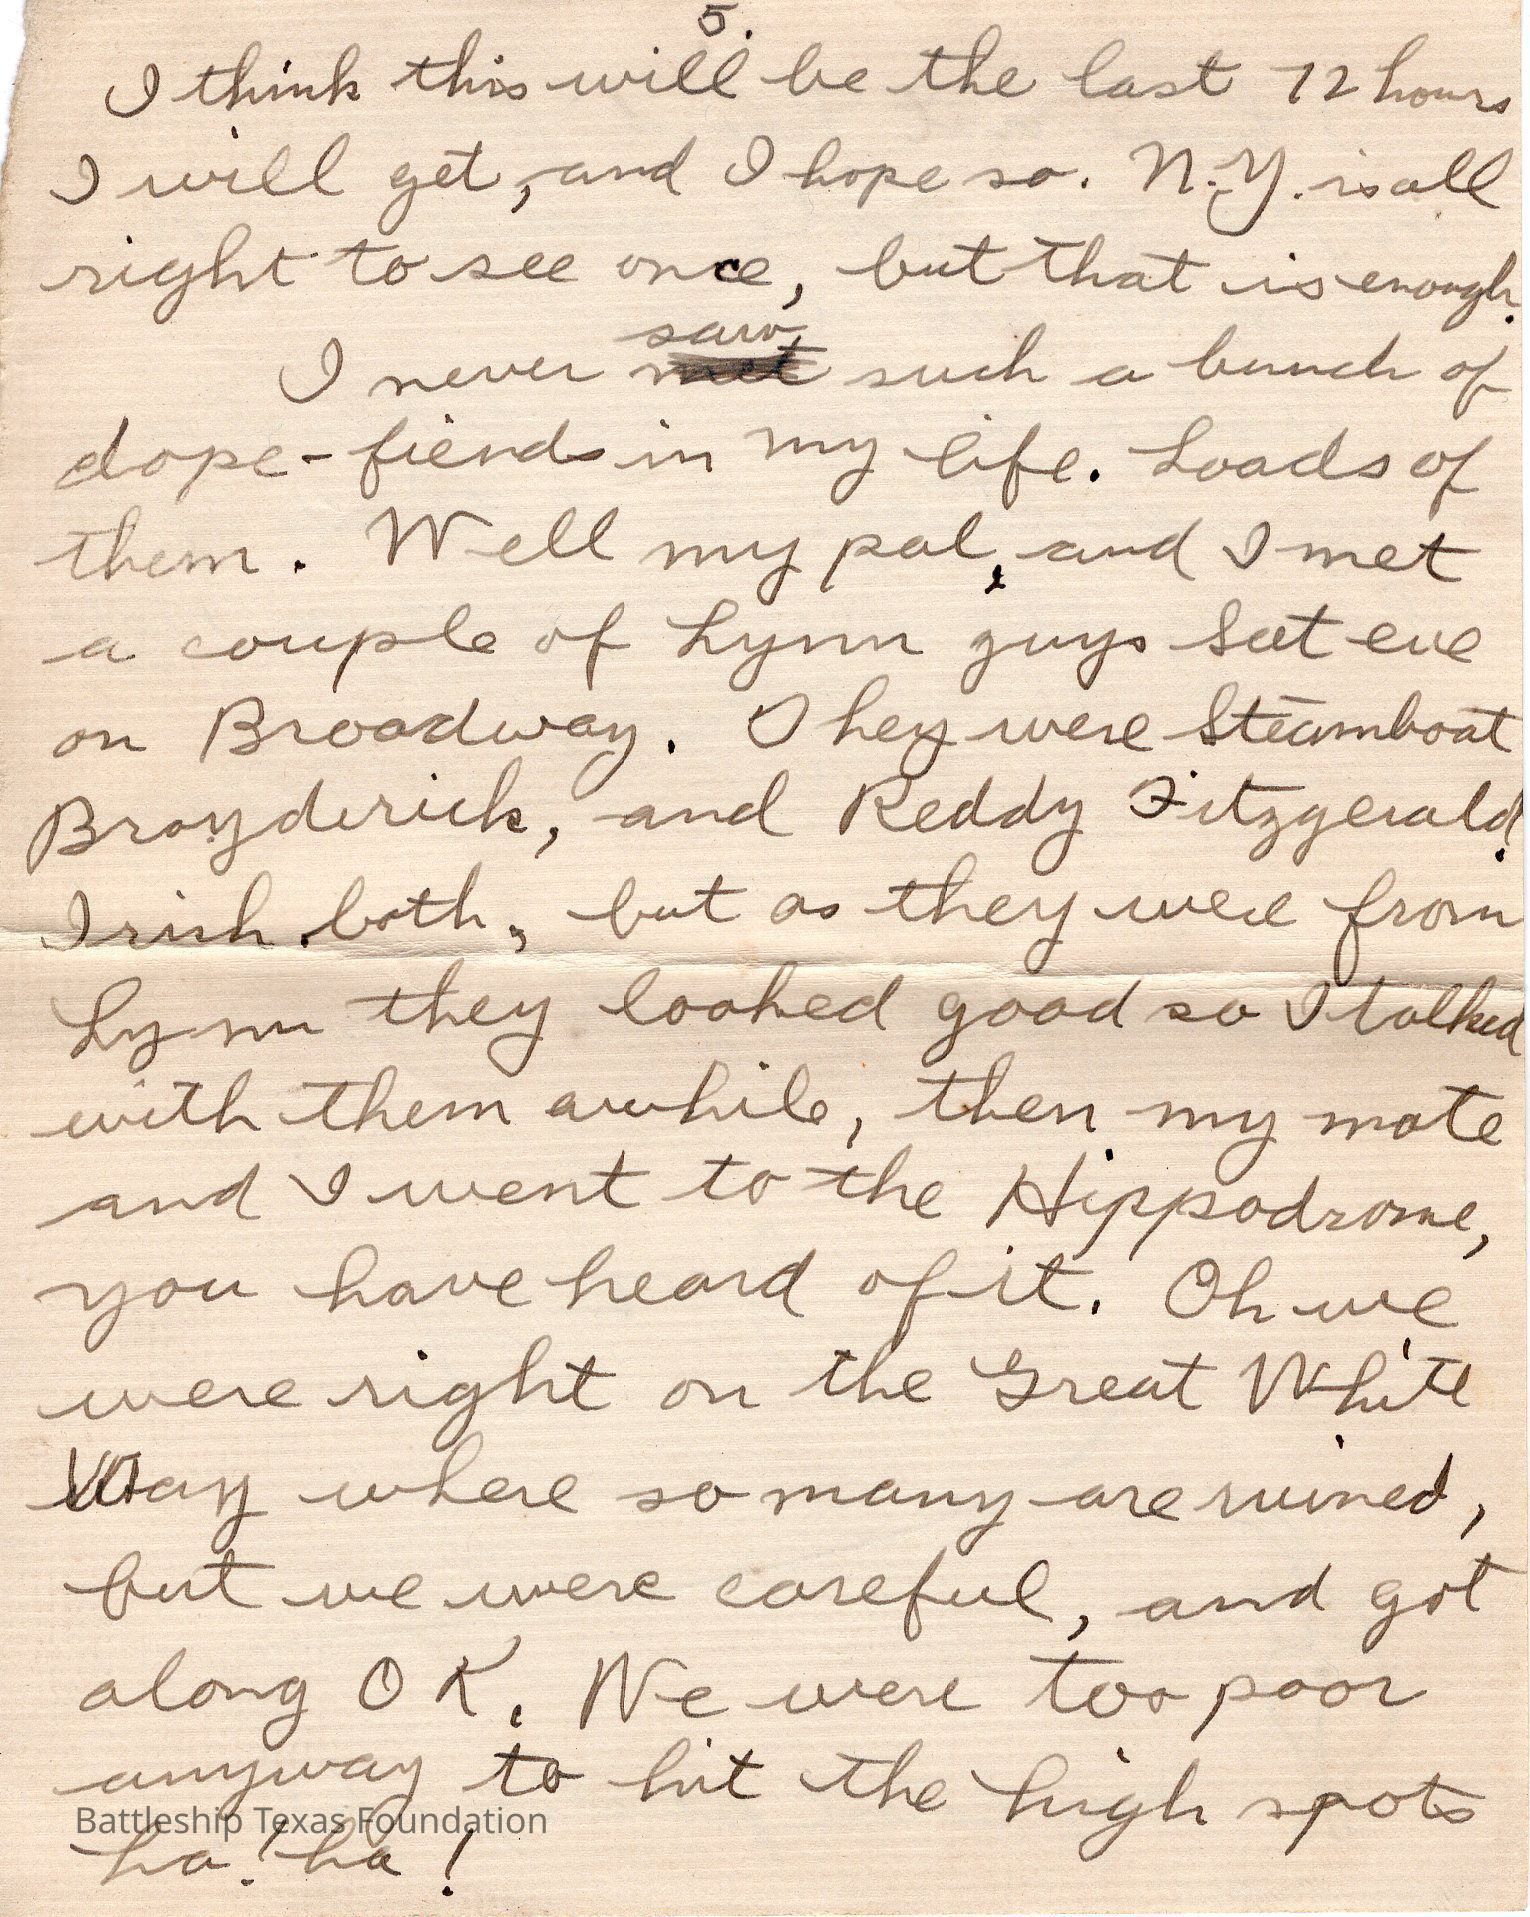 5.
I think this will be the last 72 hours
I will get, and I hope so. N.Y. is all
right to see once, but that is enough.
saw
I never met such a bunch of
dope-fiends in my life. Loads of
them. Well my pal, and I met
a couple of Lynn guys Sat eve
on Broadway. They were Steamboat
Broyderick, and Reddy Fitzgerald.
Irish both, but as they were from
Lynn they looked good so I talked
with them awhile, then my mate
and I went to the Hippodrome,
you have heard of it. Oh we
were right on the Great White
Way where so many are ruined,
but we were careful, and got
along OK. We were too poor
anyway to hit the high spots
Battleship Texas Foundation
ha! ha!